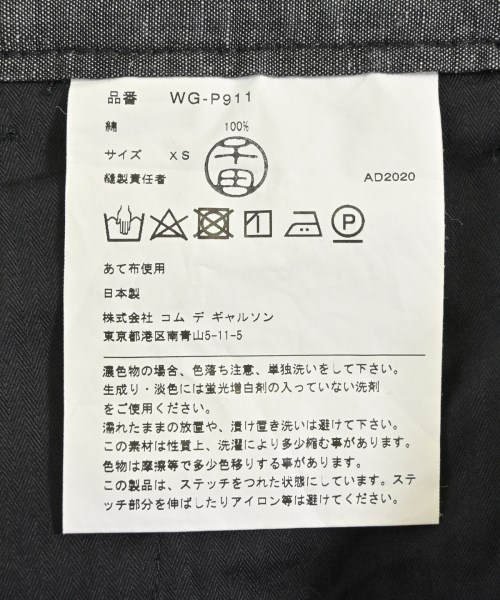 品番 WG-P911
綿 100%
サイズ XS
千田
縫製責任者 AD2020
P
あて布使用
日本製
株式会社 コム デ ギャルソン
東京都港区南青山5-11-5
濃色物の場合、色落ち注意、単独洗いをして下さい。
生成り・淡色には蛍光増白剤の入っていない洗剤
をご使用ください。
濡れたままの放置や、漬け置き洗いは避けて下さい。
この素材は性質上、洗濯により多少縮む事があります。
色物は摩擦等で多少色移りする事があります。
この製品は、ステッチをつれた状態にしています。ステ
ッチ部分を伸ばしたりアイロン等は避けてください。